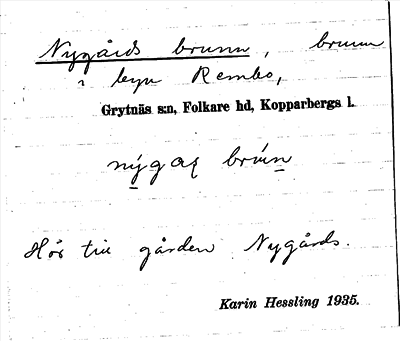 Nygårds brunn, brunn
i byn Rembo,
Grytnäs s:n, Folkare hd, Kopparbergs l.
nýgaṣ brún
Hör till gården Nygårds.
Karin Hessling 1935.